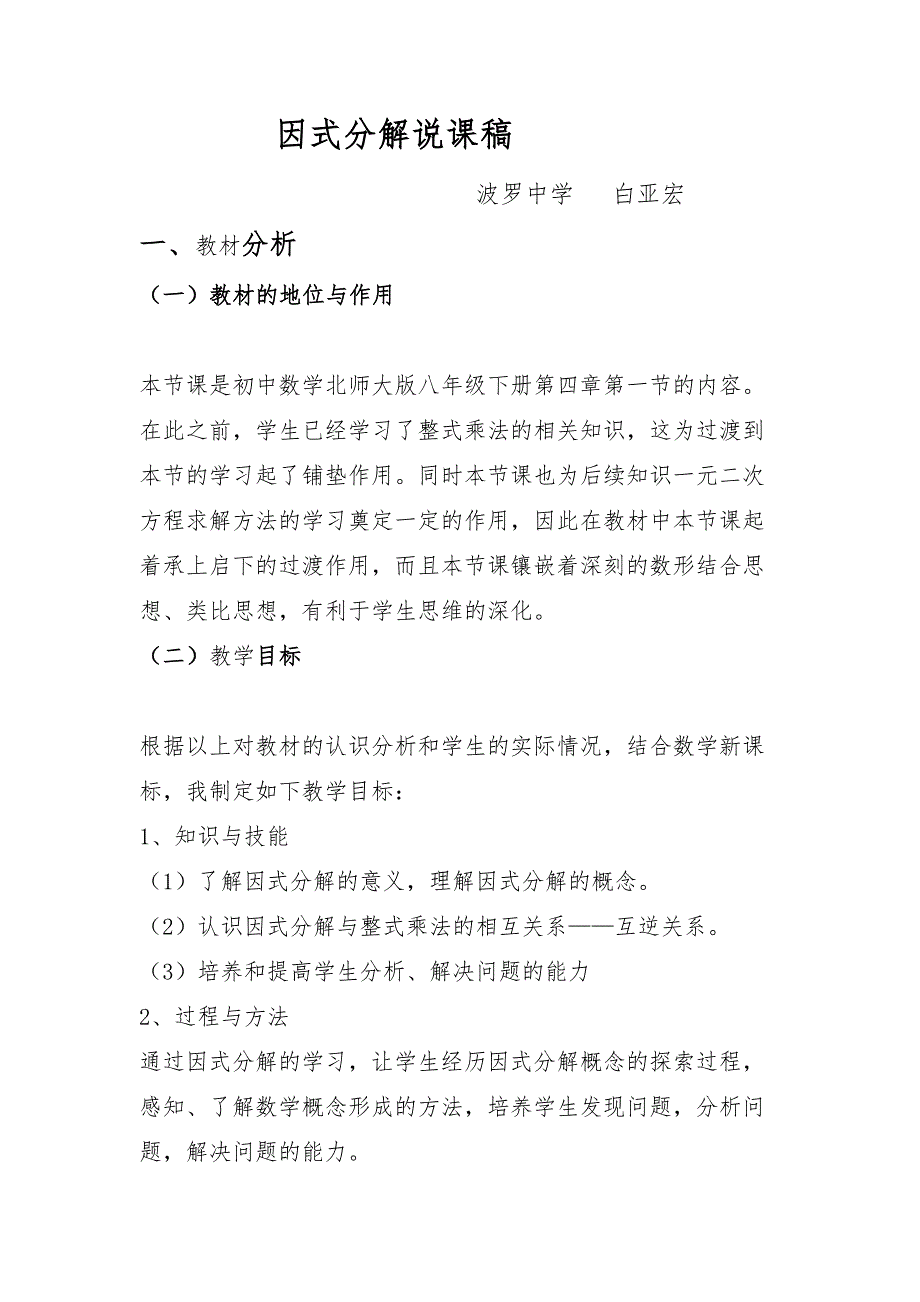 因式分解说课稿
波罗中学 白亚宏
一、教材分析
（一）教材的地位与作用
本节课是初中数学北师大版八年级下册第四章第一节的内容。
在此之前，学生已经学习了整式乘法的相关知识，这为过渡到
本节的学习起了铺垫作用。同时本节课也为后续知识一元二次
方程求解方法的学习奠定一定的作用，因此在教材中本节课起
着承上启下的过渡作用，而且本节课镶嵌着深刻的数形结合思
想、类比思想，有利于学生思维的深化。
（二）教学目标
根据以上对教材的认识分析和学生的实际情况，结合数学新课
标，我制定如下教学目标：
1、知识与技能
（1）了解因式分解的意义，理解因式分解的概念。
（2）认识因式分解与整式乘法的相互关系——互逆关系。
（3）培养和提高学生分析、解决问题的能力
2、过程与方法
通过因式分解的学习，让学生经历因式分解概念的探索过程，
感知、了解数学概念形成的方法，培养学生发现问题，分析问
题，解决问题的能力。